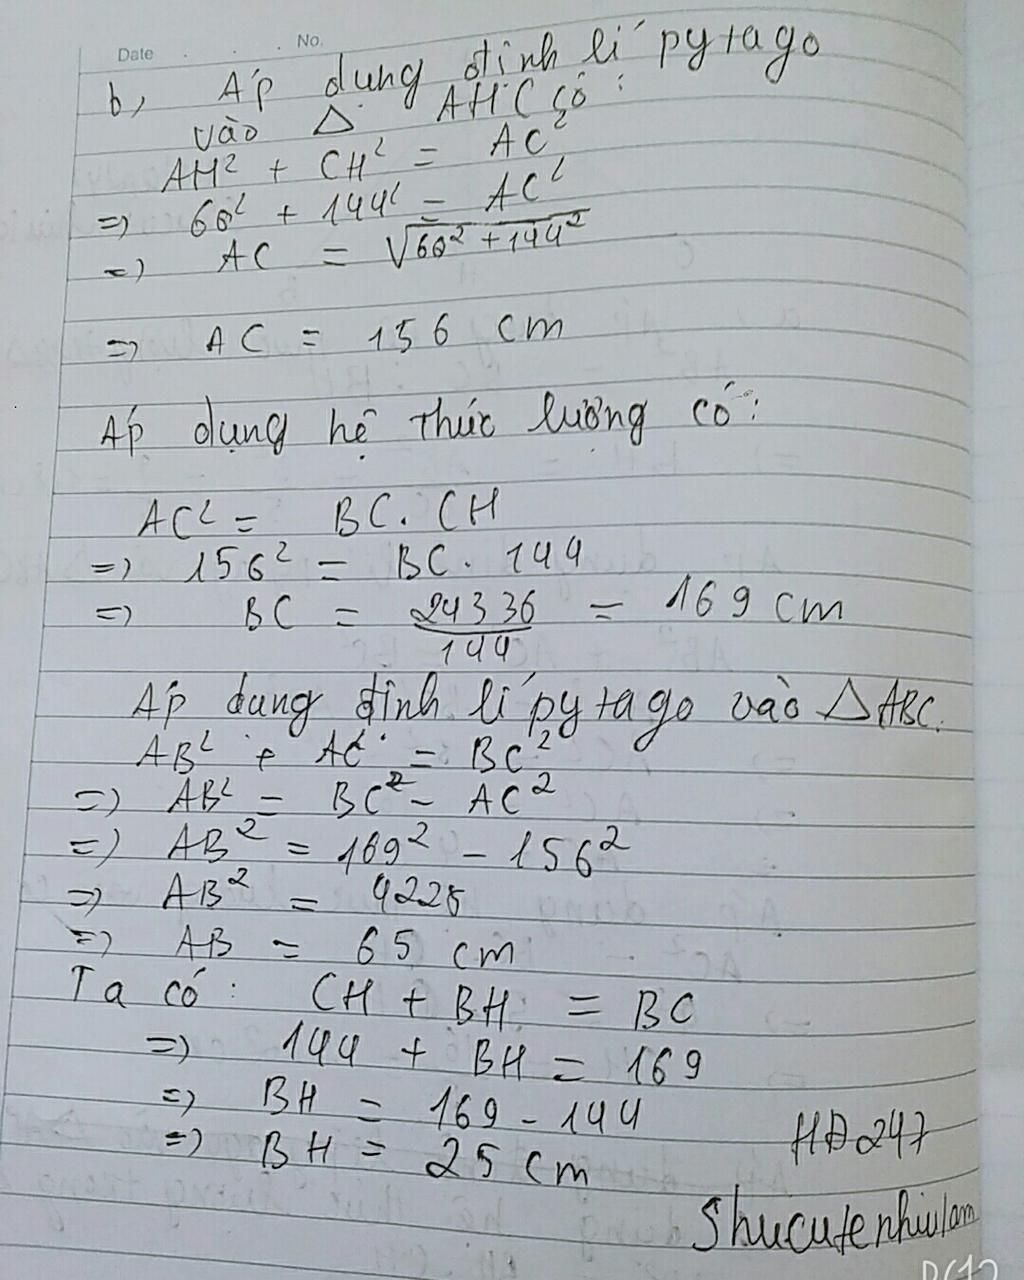 Date . . . No.
b, Áp dung định lí pytago
vào Δ AHC có :
AH² + CH² = AC²
=> 60² + 144² = AC²
=> AC = √60² + 144²
=> AC = 156 cm
Áp dụng hệ thức lương có :
AC² = BC. CH
=> 156² = BC. 144
=> BC = 24336/144 = 169 cm
Áp dung định lí pytago vào Δ ABC.
AB² + AC² = BC²
=> AB² = BC² - AC²
=> AB² = 169² - 156²
=> AB² = 4225
=> AB = 65 cm
Ta có : CH + BH = BC
=> 144 + BH = 169
=> BH = 169 - 144
=> BH = 25 cm
HĐ247
Shucutenhiulam